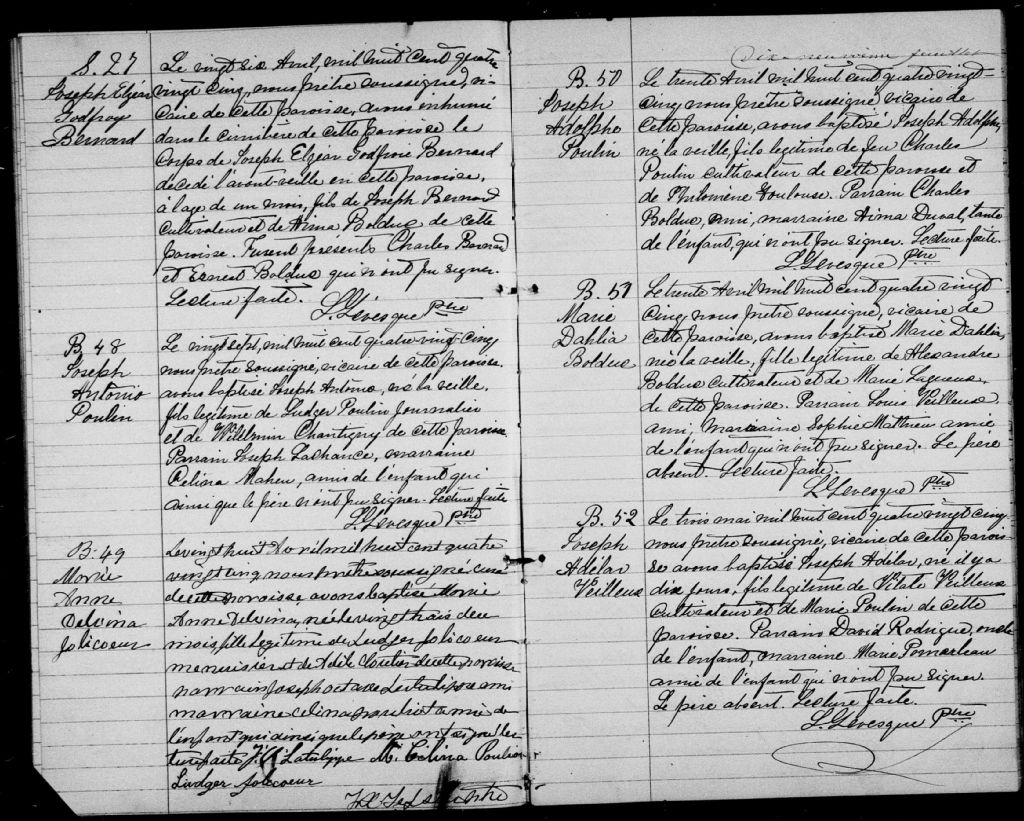 S. 27
Joseph Elzéar
Godfroy
Bernard
Le vingt six Avril, mil huit cent quatre
vingt cinq, nous prêtre soussigné, vi-
caire de cette paroisse, avons inhumé
dans le cimitière de cette paroisse le
corps de Joseph Elzéar Godfroie Bernard
décédé l'avant-veille en cette paroisse,
à l'age de un mois, fils de Joseph Bernard
cultivateur et de Alma Bolduc de cette
paroisse. Furent présents Charles Bernard
et Ernest Bolduc qui n'ont pu signer.
Lecture faite.
L. Lévesque Ptre
B. 48
Joseph
Antonio
Poulin
Le vingt sept, mil huit cent quatre-vingt-cinq
nous prêtre soussigné, vicaire de cette paroisse
avons baptisé Joseph Antonio, né la veille,
fils légitime de Ludger Poulin journalier
et de Chantigny de cette paroisse
Parrain Joseph Lachance, marraine
Célina Maheu, amis de l'enfant qui
ainsi que le père n'ont pu signer. Lecture faite
L. Levesque Ptre
B. 49
Marie
Anne
Delvina
Jolicoeur
Le vingt huit Avril mil huit cent quatre
vingt cinq nous prêtre soussigné curé
de cette paroisse avons baptisé Marie
Anne Delvina, née le vingt trois du
mois fille légitime de Ludger Jolicoeur
menuisier et de Adèle Cloutier de cette paroisse
parrain Joseph Latulippe ami
marraine Celina amie de
l'enfant qui ainsi que le père ont signé lec
ture faite J. Latulippe M. Célina Poulin
Ludger Jolicoeur
Dix neuvième feuillet
B. 50
Joseph
Adolphe
Poulin
Le trente Avril mil huit cent quatre vingt-
cinq nous prêtre soussigné vicaire de
cette paroisse, avons baptisé Joseph Adolphe,
né la veille, fils légitime de feu Charles
Poulin cultivateur de cette paroisse et
de Philomène Toulouse. Parrain Charles
Bolduc, ami, marraine Alma Duval, tante
de l'enfant, qui n'ont pu signer. Lecture faite.
L. Levesque Ptre
B. 51
Marie
Dahlia
Bolduc
Le trente Avril mil huit cent quatre vingt
cinq nous prêtre soussigné, vicaire de
cette paroisse, avons baptisé Marie Dahlia,
née la veille, fille légitime de Alexandre
Bolduc cultivateur et de Marie Lagueux,
de cette paroisse. Parrain Louis Veilleux
ami, Marraine Sophie Mathieu amie
de l'enfant qui n'ont pu signer. Le père
absent. Lecture faite.
L. Levesque Ptre
B. 52
Joseph
Adelar
Veilleux
Le trois mai mil huit cent quatre vingt cinq
nous prêtre soussigné, vicaire de cette parois-
se avons baptisé Joseph Adélar, né il y a
dix jours, fils légitime de Vitale Veilleux
cultivateur et de Marie Poulin de cette
paroisse. Parrain David Rodrigue, oncle
de l'enfant, marraine Marie Pomerleau
amie de l'enfant qui n'ont pu signer.
Le père absent. Lecture faite.
L. Levesque Ptre